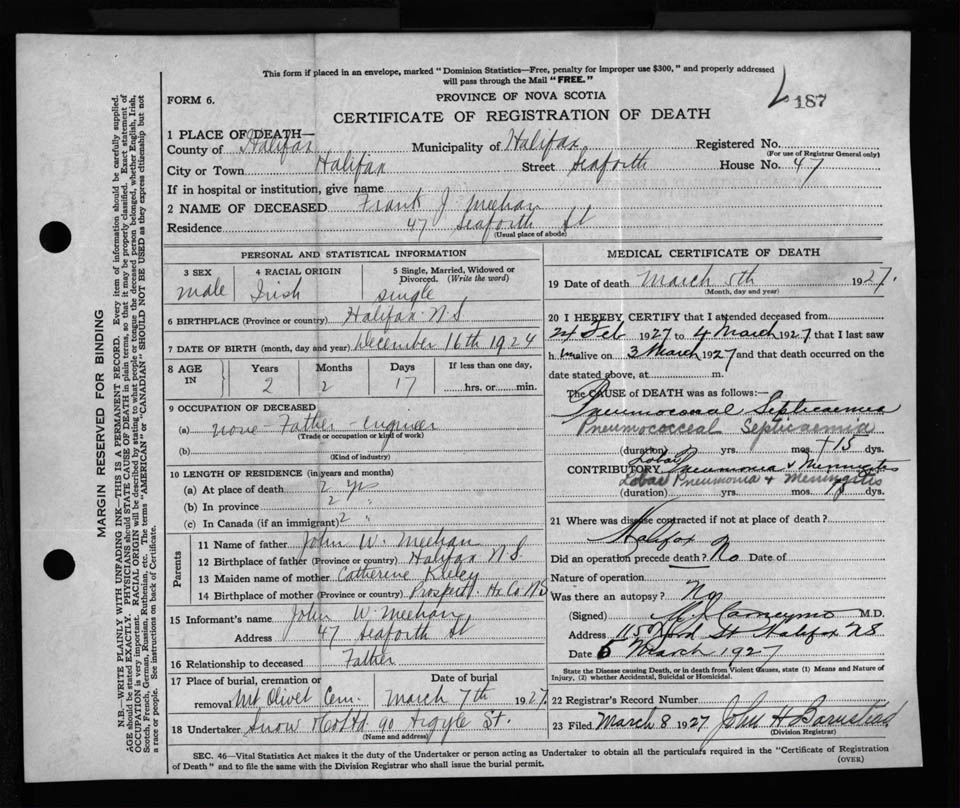 This form if placed in an envelope, marked "Dominion Statistics—Free, penalty for improper use $300," and properly addressed
will pass through the Mail "FREE."
187
FORM 6.
PROVINCE OF NOVA SCOTIA
CERTIFICATE OF REGISTRATION OF DEATH
1 PLACE OF DEATH—
County of Halifax Municipality of Halifax Registered No.
(For use of Registrar General only)
City or Town Halifax Street Seaforth House No. 47
If in hospital or institution, give name
2 NAME OF DECEASED Frank J Meehan
Residence 47 Seaforth St
(Usual place of abode)
PERSONAL AND STATISTICAL INFORMATION
3 SEX 4 RACIAL ORIGIN 5 Single, Married, Widowed or Divorced. (Write the word)
male Irish single
6 BIRTHPLACE (Province or country) Halifax N S
7 DATE OF BIRTH (month, day and year) December 16th 1924
8 AGE IN Years Months Days If less than one day,
2 2 17 hrs. or min.
9 OCCUPATION OF DECEASED
(a) none - Father - engineer
(Trade or occupation or kind of work)
(b)
(Kind of industry)
10 LENGTH OF RESIDENCE (in years and months)
(a) At place of death 2 yrs
(b) In province 2 "
(c) In Canada (if an immigrant) 2 "
Parents
11 Name of father John W. Meehan
12 Birthplace of father (Province or country) Halifax N.S.
13 Maiden name of mother Catherine
14 Birthplace of mother (Province or country) Prospect Hx Co NS
15 Informant's name John W. Meehan
Address 47 Seaforth St
16 Relationship to deceased Father
17 Place of burial, cremation or removal Mt Olivet Cem. Date of burial March 7th 1927
18 Undertaker Snow & Co Ltd 90 Argyle St.
(Name and address)
MEDICAL CERTIFICATE OF DEATH
19 Date of death March 5th 1927.
(Month, day and year)
20 I HEREBY CERTIFY that I attended deceased from
24 Feb 1927 to 4 March 1927 that I last saw
h im alive on 3 March 1927 and that death occurred on the
date stated above, at m.
The CAUSE OF DEATH was as follows:—
Pneumococcal Septicaemia
Pneumococceal Septicaemia
(duration) yrs. mos. +15 dys.
CONTRIBUTORY Lobar Pneumonia & Meningitis
Lobar Pneumonia + Meningitis
(duration) yrs. mos. dys.
21 Where was disease contracted if not at place of death?
Halifax
Did an operation precede death? No Date of
Nature of operation
Was there an autopsy? No
(Signed) M.D.
Address St Halifax N.S.
Date 6 March 1927
State the Disease causing Death, or in death from Violent Causes, state (1) Means and Nature of
Injury, (2) whether Accidental, Suicidal or Homicidal.
22 Registrar's Record Number
23 Filed March 8 1927 John H Barnstead
(Division Registrar)
SEC. 46—Vital Statistics Act makes it the duty of the Undertaker or person acting as Undertaker to obtain all the particulars required in the "Certificate of Registration
of Death" and to file the same with the Division Registrar who shall issue the burial permit.
(OVER)
MARGIN RESERVED FOR BINDING
N.B.—WRITE PLAINLY WITH UNFADING INK—THIS IS A PERMANENT RECORD. Every item of information should be carefully supplied.
AGE should be stated EXACTLY. PHYSICIANS should STATE CAUSE OF DEATH in plain terms, so that it may be properly classified. Exact statement of
OCCUPATION is very important. RACIAL ORIGIN will be described by stating to what people or tongue the deceased person belonged, whether English, Irish,
Scotch, French, German, Russian, Ruthenian, etc. The terms "AMERICAN" or "CANADIAN" SHOULD NOT BE USED as they express citizenship but not
a race or people. See instructions on back of Certificate.